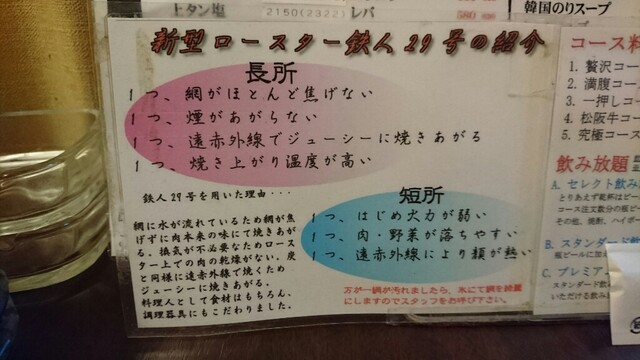 上タン塩
2150(2322)
レバ
580
韓国のりスープ
新型ロースター鉄人29号の紹介
長所
1つ、網がほとんど焦げない
1つ、煙があがらない
1つ、遠赤外線でジューシーに焼きあがる
1つ、焼き上がり温度が高い
鉄人29号を用いた理由・・・
網に水が流れているため網が焦
げずに肉本来の味にて焼きあが
る。換気が不必要なためロース
ター上での肉の乾燥がない。炭
と同様に遠赤外線で焼くため
ジューシーに焼きあがる。
料理人として食材はもちろん、
調理器具にもこだわりました。
短所
1つ、はじめ火力が弱い
1つ、肉・野菜が落ちやすい
1つ、遠赤外線により顔が熱い
万が一網が汚れましたら、氷にて網を綺麗
にしますのでスタッフをお呼び下さい。
コース料
1. 贅沢コー
2. 満腹コー
3. 一押しコー
4. 松阪牛コー
5. 究極コー
飲み放題
A. セレクト飲み
とりあえず乾杯はビー
コース注文数分の瓶ビー
その他、焼酎、ハイボー
B. スタンダード飲
瓶ビールに加
C. プレミアム
スタンダード飲み
いただける飲み